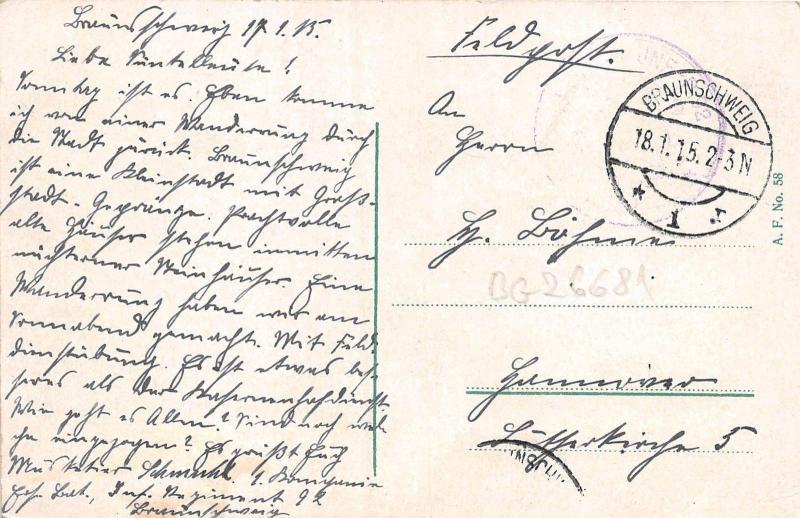 Braunschweig 17.1.15.
Liebe Sünteleute!
Sonntag ist es. Eben komme
ich von einer Wanderung durch
die Stadt zurück. Braunschweig
ist eine Kleinstadt mit Groß-
stadt-Gepränge. Prachtvolle
alte Häuser stehen inmitten
nüchterner Steinhäuser. Eine
Wanderung haben wir am
Sonnabend gemacht. Mit Feld-
dienstübung. Es ist etwas bes-
seres als der Kasernenhofdienst.
Wie geht es Allen? Sind noch wel-
che eingezogen? Es grüßt Euch
Musketier Schmuhl 1. Kompanie
Ers. Bat., Inf. Regiment 92
Braunschweig
Feldpost.
An
Herrn
H. Böhme
Hannover
Lutherkirche 5
BG26681
BRAUNSCHWEIG
18.1.15.2-3N
* 1 r.
A. F. No. 58